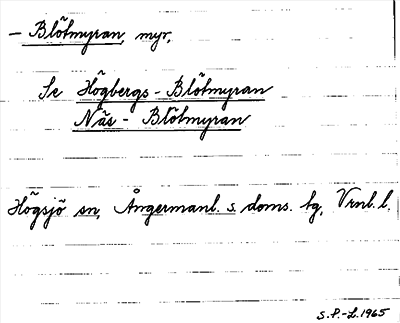 – Blötmyran, myr,
Se Högbergs - Blötmyran
Näs - Blötmyran
Högsjö sn, Ångermanl. s. doms. tg, Vrnl. l.
S.P.-L. 1965